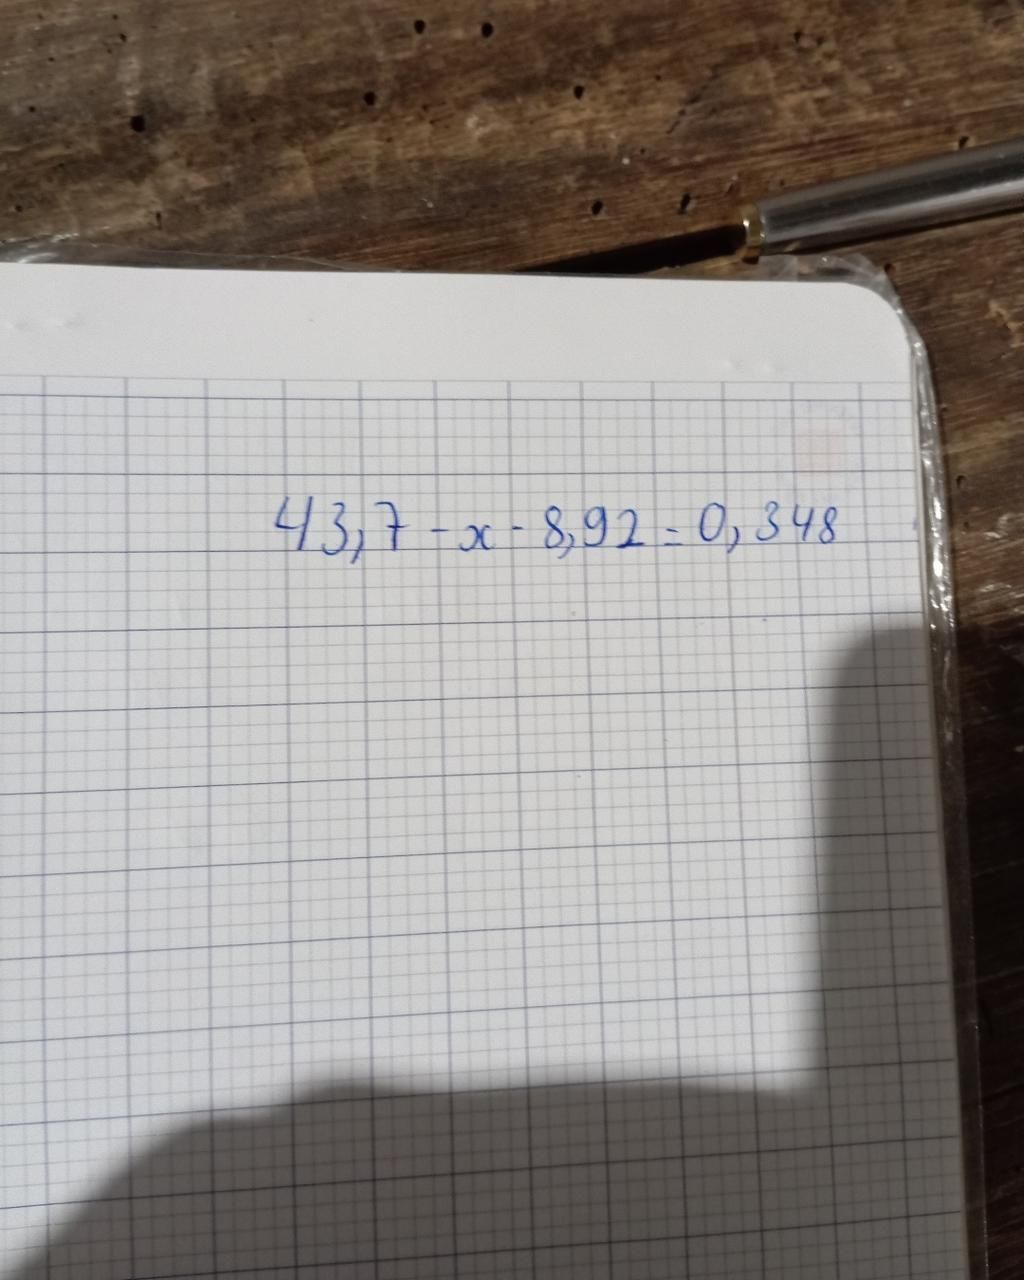 43,7 - x - 8,92 = 0,348